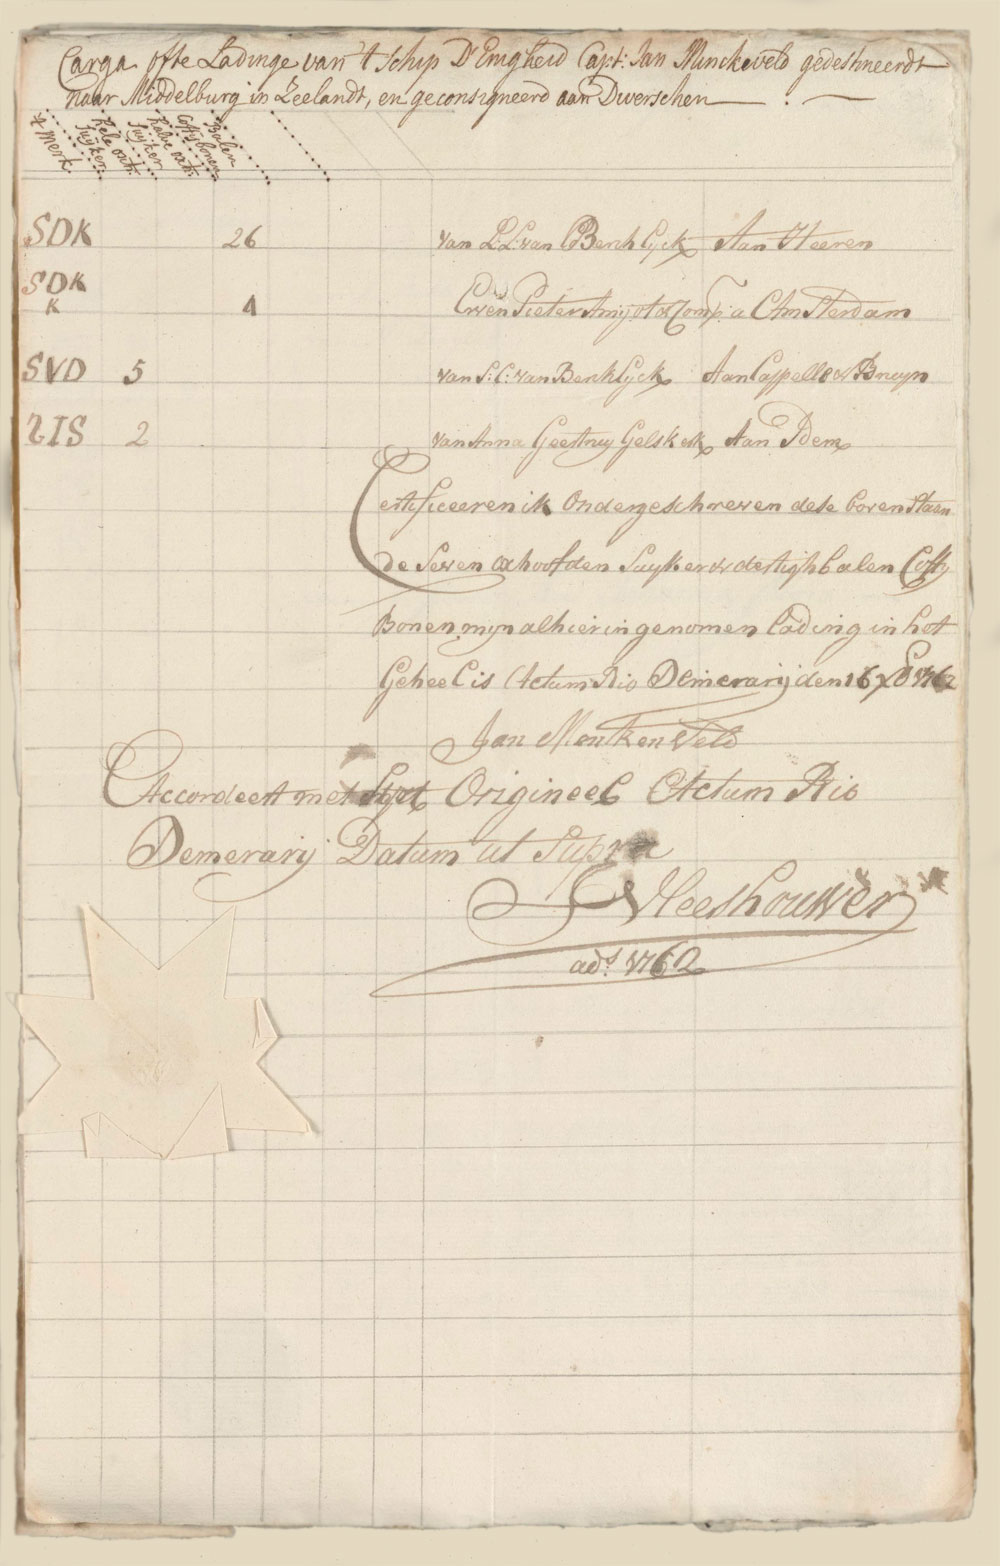 Carga ofte Ladinge van 't Schip D'Enigheid Capt: Jan Munckeveld gedestineerdt
naar Middelburg in Zeelandt, en geconsigneerd aan Diverschen
't Merk
hele oxh: Suyker
halve oxh: Suyker
Balen Coffy bonen
SDK 26 van L:L: van Berchl Eyck Aan Heeren
SDK
K 4 Erven Pieter Amijot & Comp: a Amsterdam
SVD 5 van S: C: van Berchl Eyck Aan Cappelle & Bruyn
2IS 2 van Anna Geertruy Aan Idem
Certificeeren ik Ondergeschreven dese bovenstaen
de Seven oxhoofden Suyker & dertigh balen Coffy
Bonen mijn alhier in genomen lading in het
Geheel is Actum Rio Demerary den 16 1762
Jan Monkenveld
Accordeert met Origineel Actum Rio
Demerary Datum ut Supra
Vleeshouwer
ads. 1762